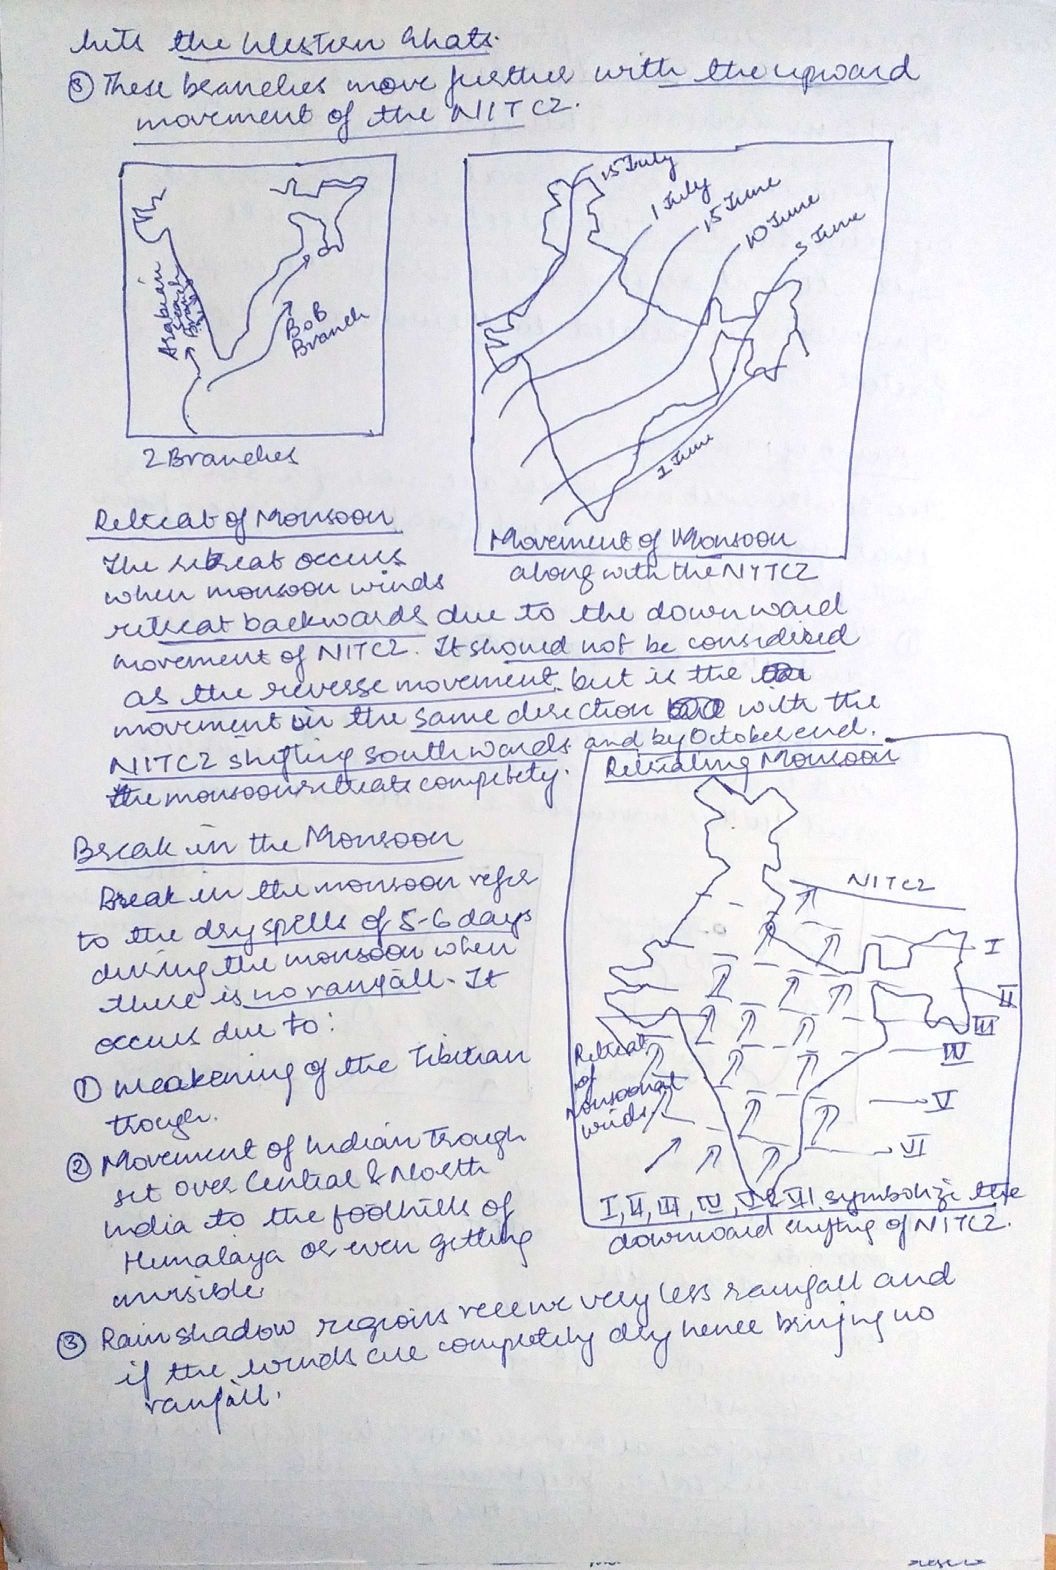 hits the Western Ghats.
③ These branches move further with the upward
movement of the NITCZ.
Arabian
Sea
Branch
BoB
Branch
2 Branches
15 July
1 July
15 June
10 June
5 June
1 June
Movement of Monsoon
along with the NITCZ
Retreat of Monsoon
The retreat occurs
when monsoon winds
retreat backwards due to the downward
movement of NITCZ. It should not be considered
as the reverse movement, but is the
movement in the same direction with the
NITCZ shifting southwards and by October end.
the monsoon retreats completely.
Retreating Monsoon
NITCZ
I
II
III
IV
V
VI
Retreat
of
monsoonal
winds
I, II, III, IV, V & VI symbolize the
downward shifting of NITCZ.
Break in the Monsoon
Break in the monsoon refer
to the dry spells of 5-6 days
during the monsoon when
there is no rainfall. It
occurs due to:
① Weakening of the Tibetian
trough.
② Movement of Indian Trough
set over Central & North
India to the foothills of
Himalaya or even getting
invisible
③ Rain shadow regions receive very less rainfall and
if the winds are completely dry hence bringing no
rainfall.